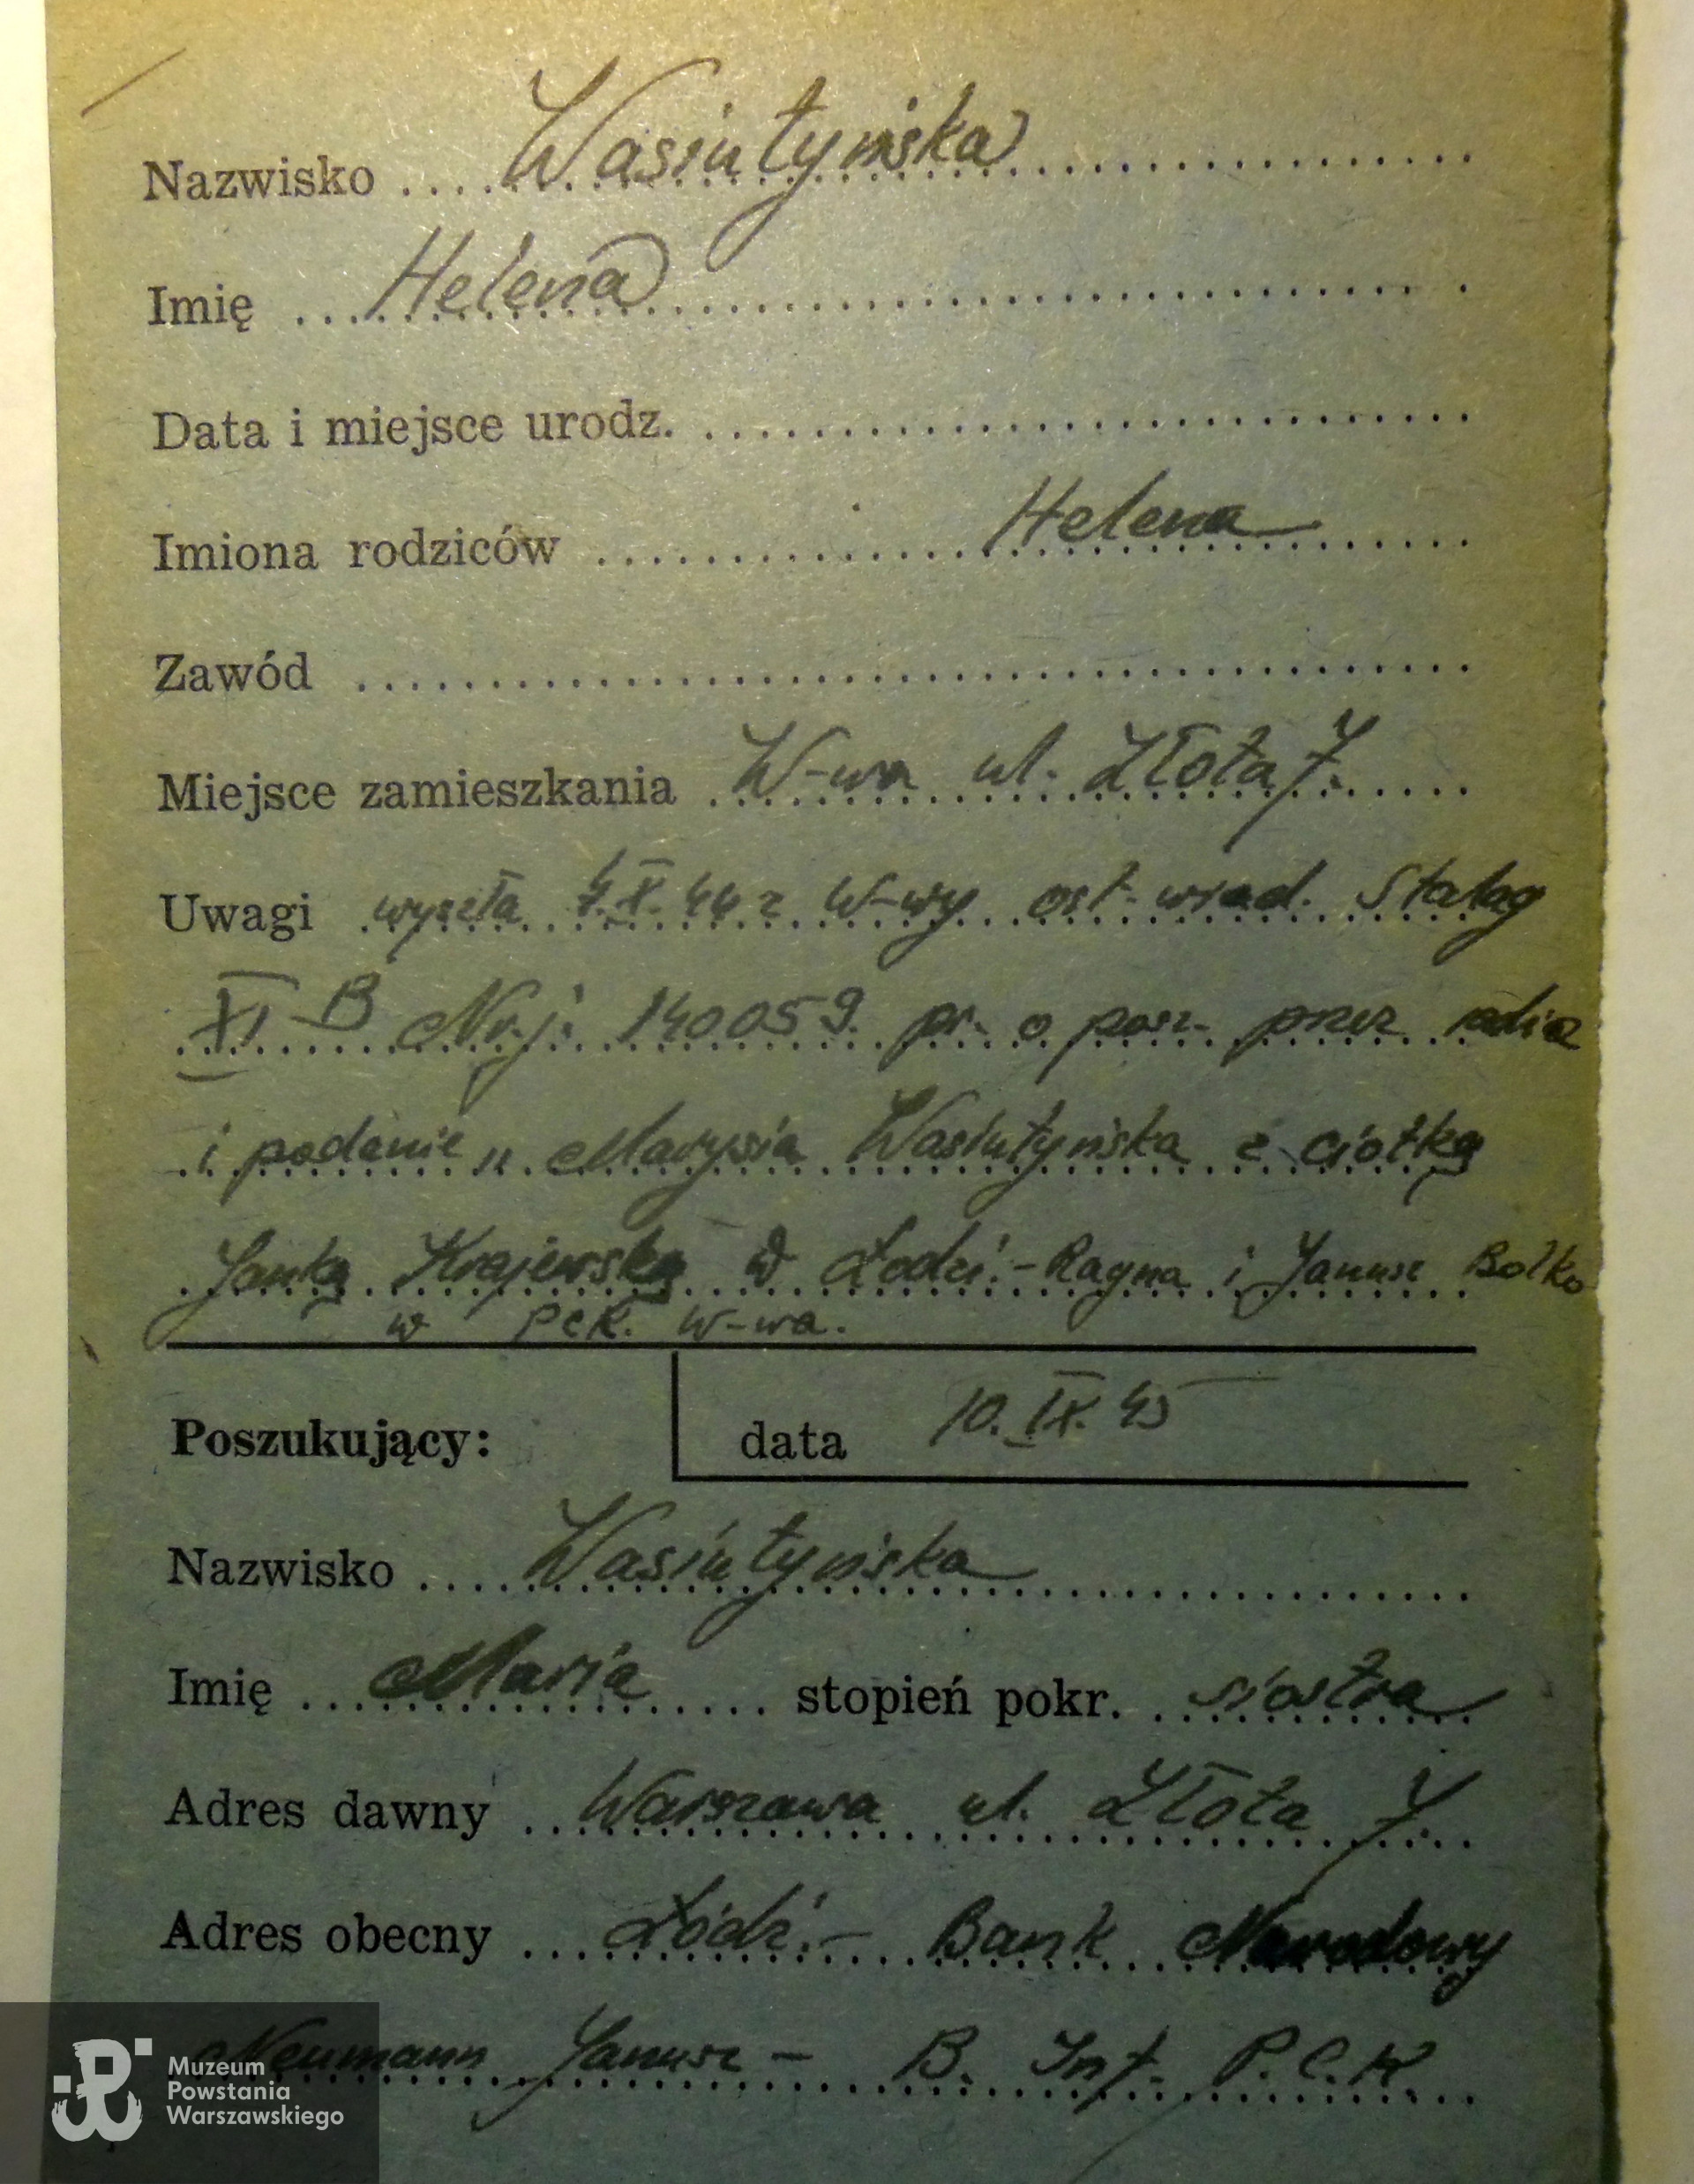 Nazwisko Wasiutyńska
Imię Helena
Data i miejsce urodz.
Imiona rodziców Helena
Zawód
Miejsce zamieszkania W-wa ul. Złota 7.
Uwagi wyszła X. 44 z W-wy ost. wiad. Stalag
XI B Nr.j. 140059. pr. o posz. przez radio
i podanie „ Marysia Wasiutyńska z ciotką
Janką Krajewską w Łodzi - Ragna i Janusz Bolko
w PCK. W-wa.
Poszukujący: data 10. IX. 45
Nazwisko Wasiutyńska
Imię Maria stopień pokr. siostra
Adres dawny Warszawa ul. Złota 7.
Adres obecny Łódź - Bank Narodowy
Neumann Janusz - B. Inf. P.C.K
Muzeum
Powstania
Warszawskiego